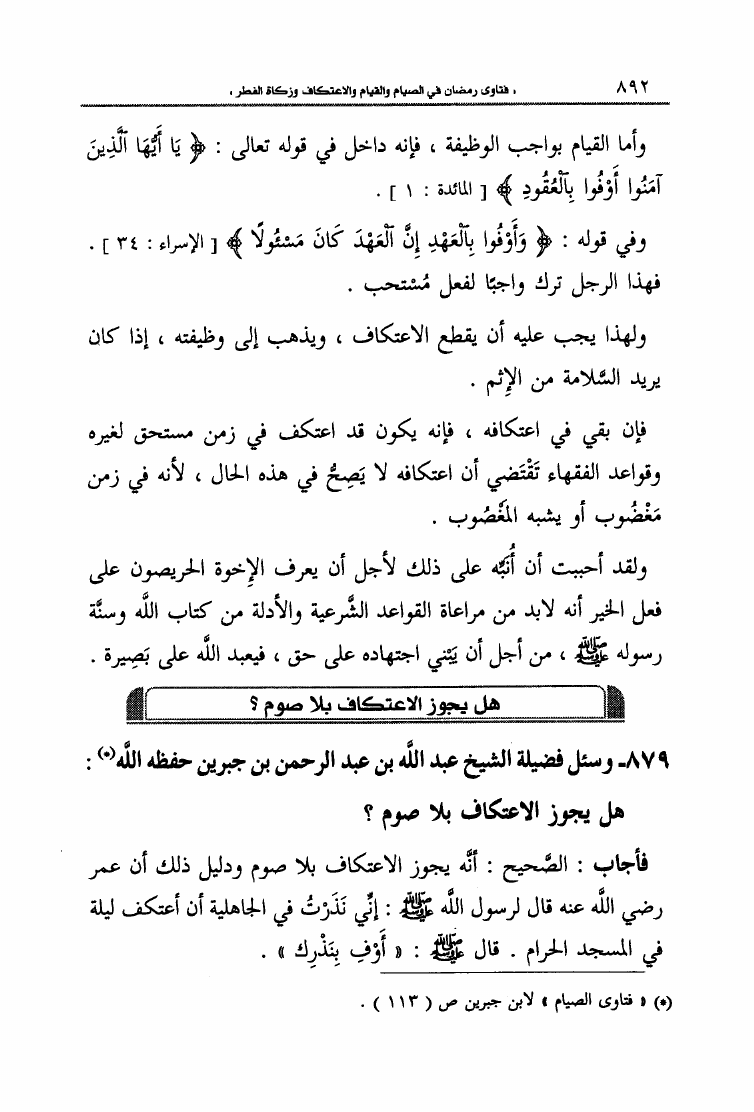 ٨٩٢
« فتاوى رمضان في الصيام والقيام والاعتكاف وزكاة الفطر »
وأما القيام بواجب الوظيفة ، فإنه داخل في قوله تعالى : ﴿ يَا أَيُّهَا ٱلَّذِينَ
آمَنُوا أَوْفُوا بِٱلْعُقُودِ ﴾ [ المائدة : ١ ] .
وفي قوله : ﴿ وَأَوْفُوا بِٱلْعَهْدِ إِنَّ ٱلْعَهْدَ كَانَ مَسْئُولًا ﴾ [ الإسراء : ٣٤ ] .
فهذا الرجل ترك واجبًا لفعل مُسْتحب .
ولهذا يجب عليه أن يقطع الاعتكاف ، ويذهب إلى وظيفته ، إذا كان
يريد السَّلامة من الإِثم .
فإن بقي في اعتكافه ، فإنه يكون قد اعتكف في زمن مستحق لغيره
وقواعد الفقهاء تَقْتَضي أن اعتكافه لا يَصِحُّ في هذه الحال ، لأنه في زمن
مَغْصُوب أو يشبه المَغْصُوب .
ولقد أحببت أن أُنَبِّه على ذلك لأجل أن يعرف الإِخوة الحريصون على
فعل الخير أنه لابد من مراعاة القواعد الشَّرعية والأدلة من كتاب اللَّه وسنَّة
رسوله ﷺ ، من أجل أن يَبْني اجتهاده على حق ، فيعبد اللَّه على بَصِيرة .
هل يجوز الاعتكاف بلا صوم ؟
٨٧٩ـ وسئل فضيلة الشيخ عبد اللَّه بن عبد الرحمن بن جبرين حفظه اللَّه(*) :
هل يجوز الاعتكاف بلا صوم ؟
فأجاب : الصَّحيح : أنَّه يجوز الاعتكاف بلا صوم ودليل ذلك أن عمر
رضي اللَّه عنه قال لرسول اللَّه ﷺ : إنِّي نَذَرْتُ في الجاهلية أن أعتكف ليلة
في المسجد الحرام . قال ﷺ : « أَوْفِ بِنَذْرِك » .
(*) « فتاوى الصيام » لابن جبرين ص ( ١١٣ ) .